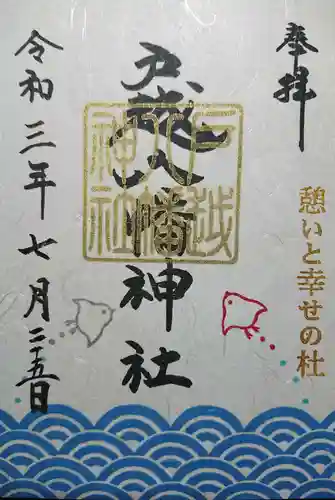 奉拝
憩いと幸せの杜
戸越八幡神社
戸越八幡神社
令和三年七月二十五日